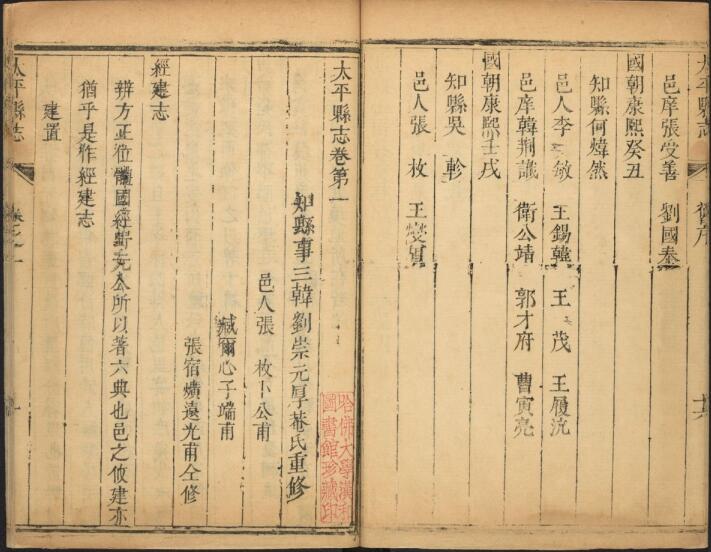 太平縣志 舊序 十六
邑庠張受善 劉國泰
國朝康熙癸丑
知縣何煒然
邑人李敏 王錫韓 王茂 王履沆
邑庠韓荊識 衛公靖 郭才府 曹寅亮
國朝康熙壬戌
知縣吳軫
邑人張枚 王燮
太平縣志卷第一
哈佛大學漢和
圖書館珍藏印
知縣事三韓劉崇元厚菴氏重修
邑人張枚卜公甫
臧爾心子端甫
張宿爌遠光甫仝修
經建志
辨方正位體國經野元公所以著六典也邑之攸建亦
猶乎是作經建志
建置
太平縣志 卷之一 一